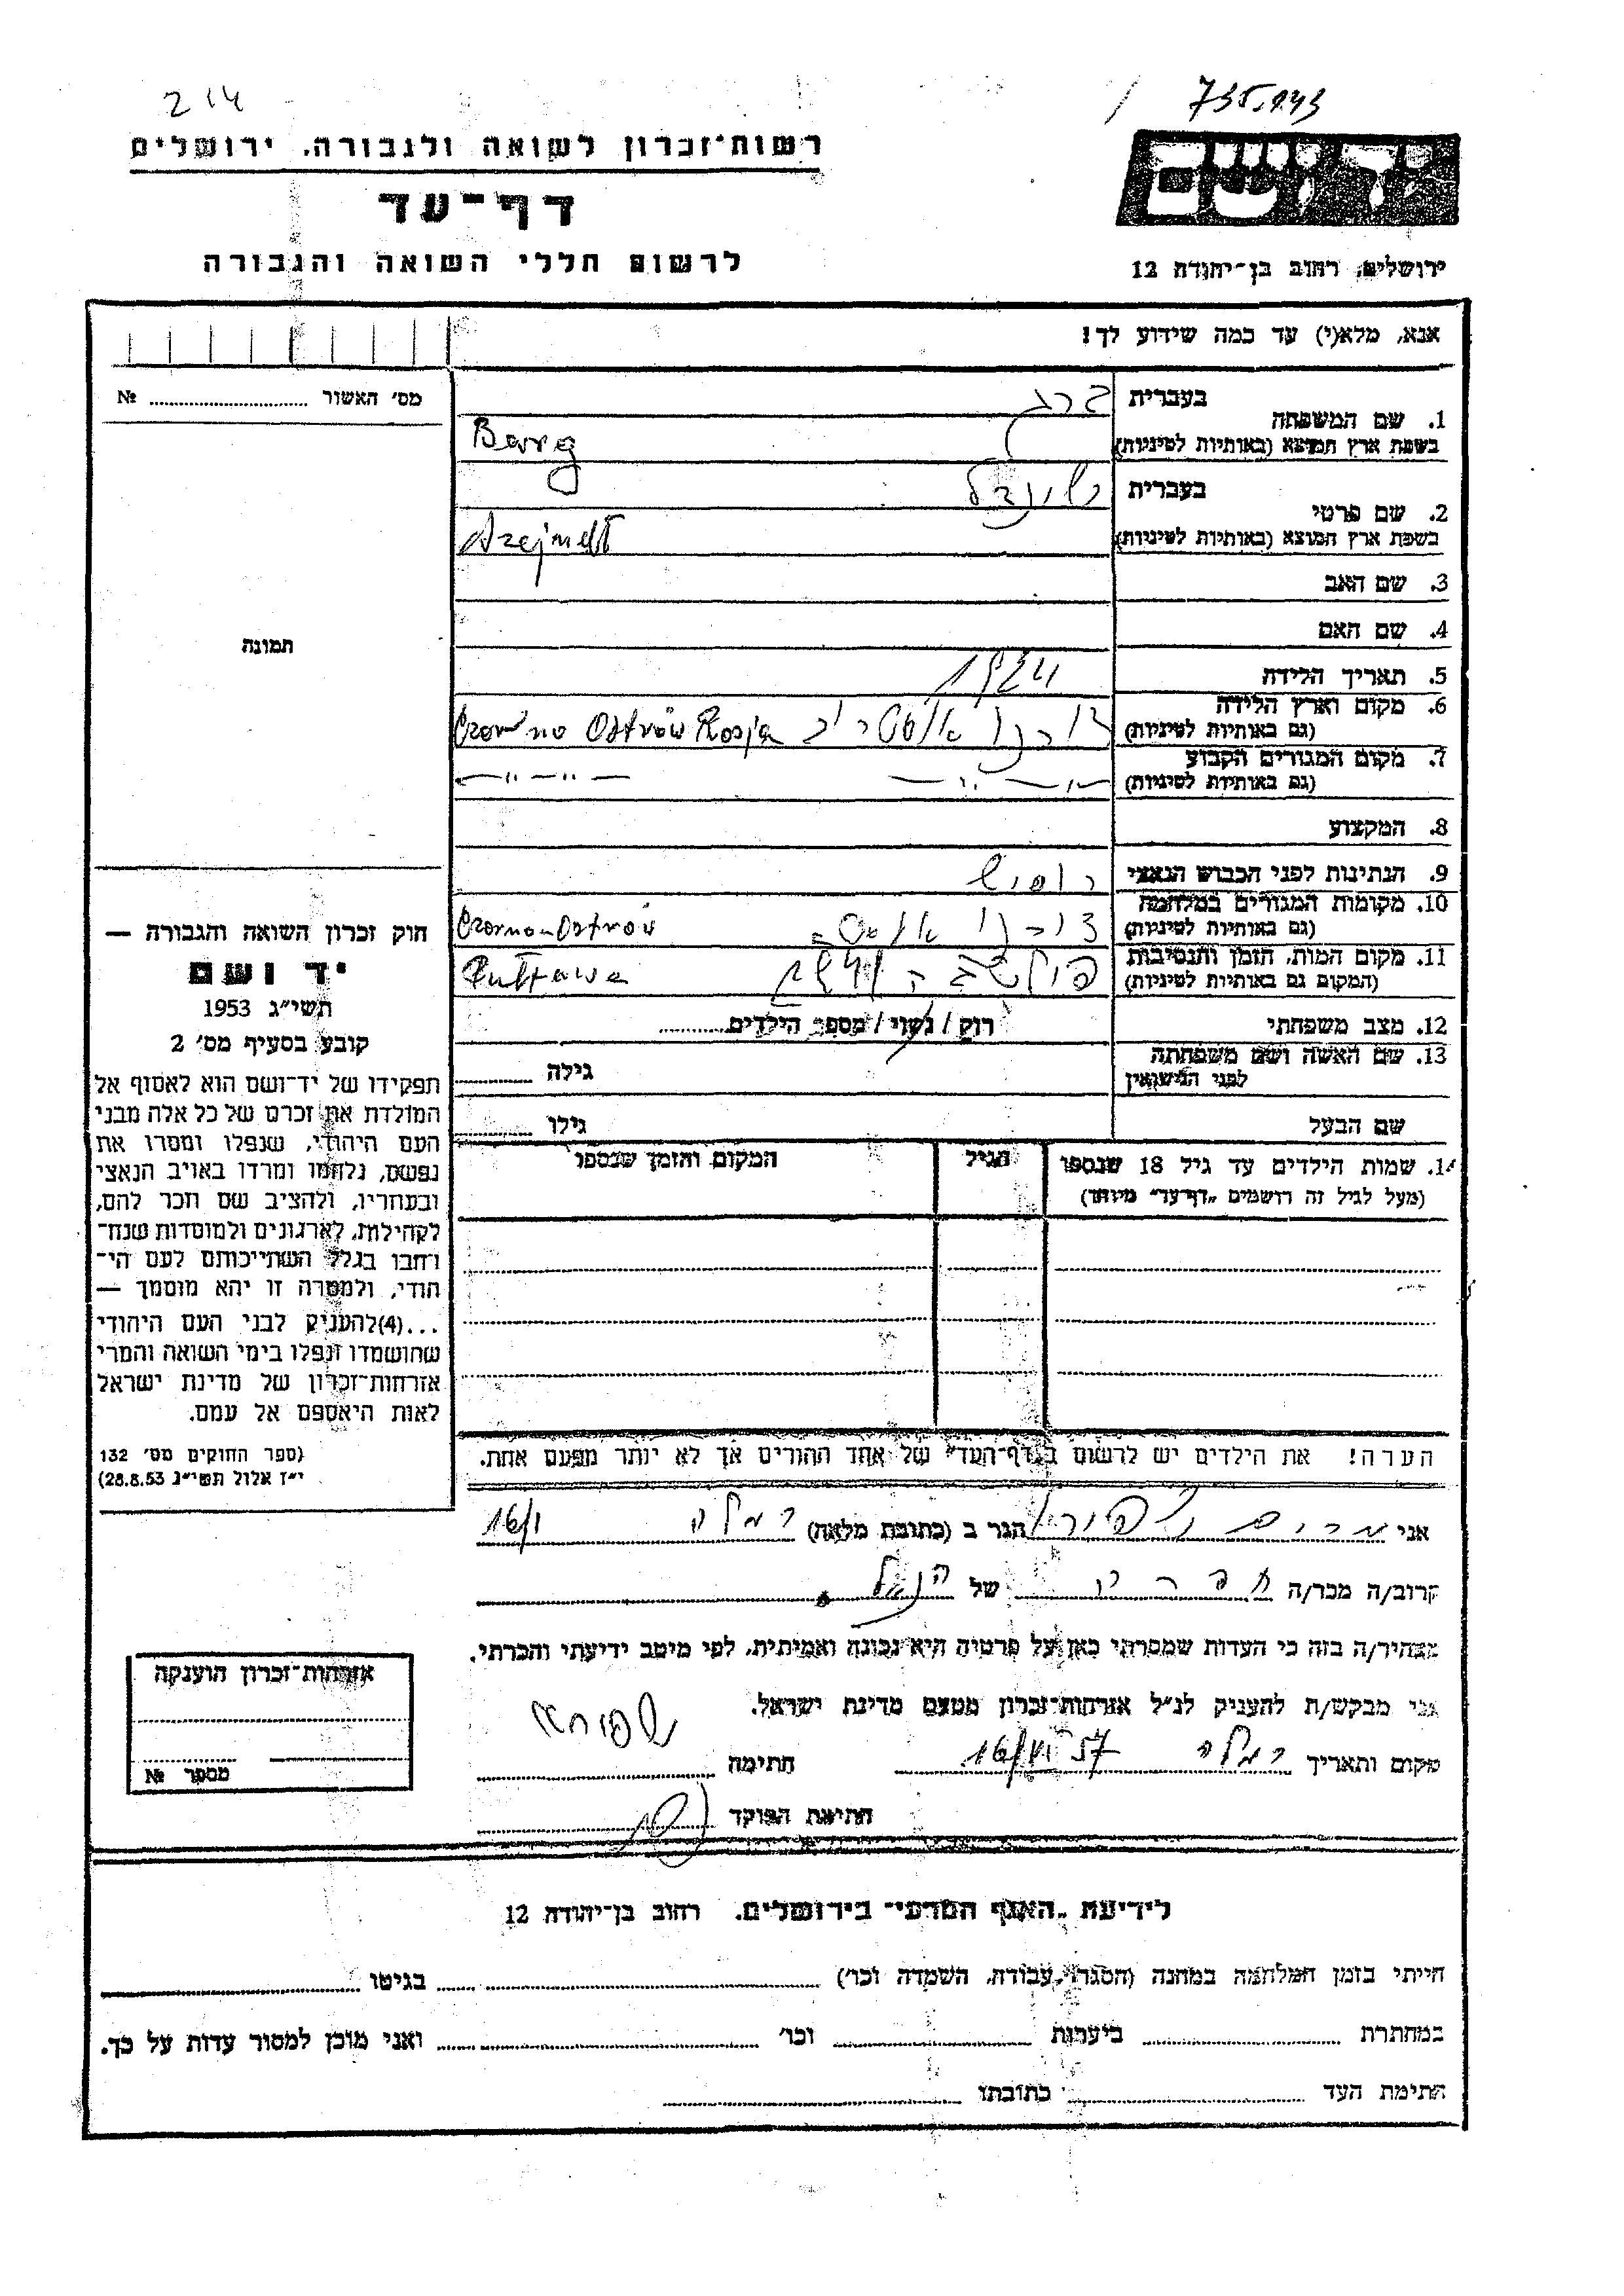 214
רשות־זכרון לשואה ולגבורה, ירושלים
דף־עד
לרשום חללי השואה והגבורה
יד ושם
ירושלים, רחוב בן־יהודה 12
אנא, מלא(י) עד כמה שידוע לך!
מס׳ האשור ............ №
תמונה
1. שם המשפחה
בעברית ברג
בשפת ארץ המוצא (באותיות לטיניות) Barg
2. שם פרטי
בעברית
בשפת ארץ המוצא (באותיות לטיניות)
3. שם האב
4. שם האם
5. תאריך הלידה 1924
6. מקום וארץ הלידה
(גם באותיות לטיניות) Ostrów Rosja
7. מקום המגורים הקבוע
(גם באותיות לטיניות) — ״ — ״ —
8. המקצוע
9. הנתינות לפני הכבוש הנאצי רוסיש
10. מקומות המגורים במלחמה
(גם באותיות לטיניות) Ostrów
11. מקום המות, הזמן והנסיבות
(המקום גם באותיות לטיניות) Pułtawa
12. מצב משפחתי רוק / נשוי / מספר הילדים ............
13. שם האשה ושם משפחתה
לפני הנישואין גילה ............
שם הבעל גילו ............
14. שמות הילדים עד גיל 18 שנספו הגיל המקום והזמן שנספו
(מעל לגיל זה רושמים „דף־עד״ מיוחד)
הערה! את הילדים יש לרשום ב„דף־העד״ של אחד ההורים אך לא יותר מפעם אחת.
חוק זכרון השואה והגבורה —
יד ושם
תשי״ג 1953
קובע בסעיף מס׳ 2
תפקידו של יד־ושם הוא לאסוף אל
המולדת את זכרם של כל אלה מבני
העם היהודי, שנפלו ומסרו את
נפשם, נלחמו ומרדו באויב הנאצי
ובעוזריו, ולהציב שם וזכר להם,
לקהילות, לארגונים ולמוסדות שנח־
רבו בגלל השתייכותם לעם הי־
הודי, ולמטרה זו יהא מוסמך —
...(4) להעניק לבני העם היהודי
שהושמדו ונפלו בימי השואה והמרי
אזרחות־זכרון של מדינת ישראל
לאות היאספם אל עמם.
(ספר החוקים מס׳ 132
י״ז אלול תשי״ג 28.8.53)
אני מרים הגר ב (כתובת מלאה) רמלה
קרוב/ה מכר/ה חברו של הנ״ל
מצהיר/ה בזה כי העדות שמסרתי כאן על פרטיה היא נכונה ואמיתית, לפי מיטב ידיעתי והכרתי.
אני מבקש/ת להעניק לנ״ל אזרחות־זכרון מטעם מדינת ישראל.
מקום ותאריך רמלה 16/VI 57 חתימה
חתימת הפוקד
אזרחות־זכרון הוענקה
מספר №
לידיעת „האגף המדעי״ בירושלים, רחוב בן־יהודה 12
הייתי בזמן המלחמה במחנה (הסגר, עבודה, השמדה וכו׳) ............ בגיטו ............
במחתרת ............ ביערות ............ וכו׳ ............ ואני מוכן למסור עדות על כך.
חתימת העד ............ כתובתו ............